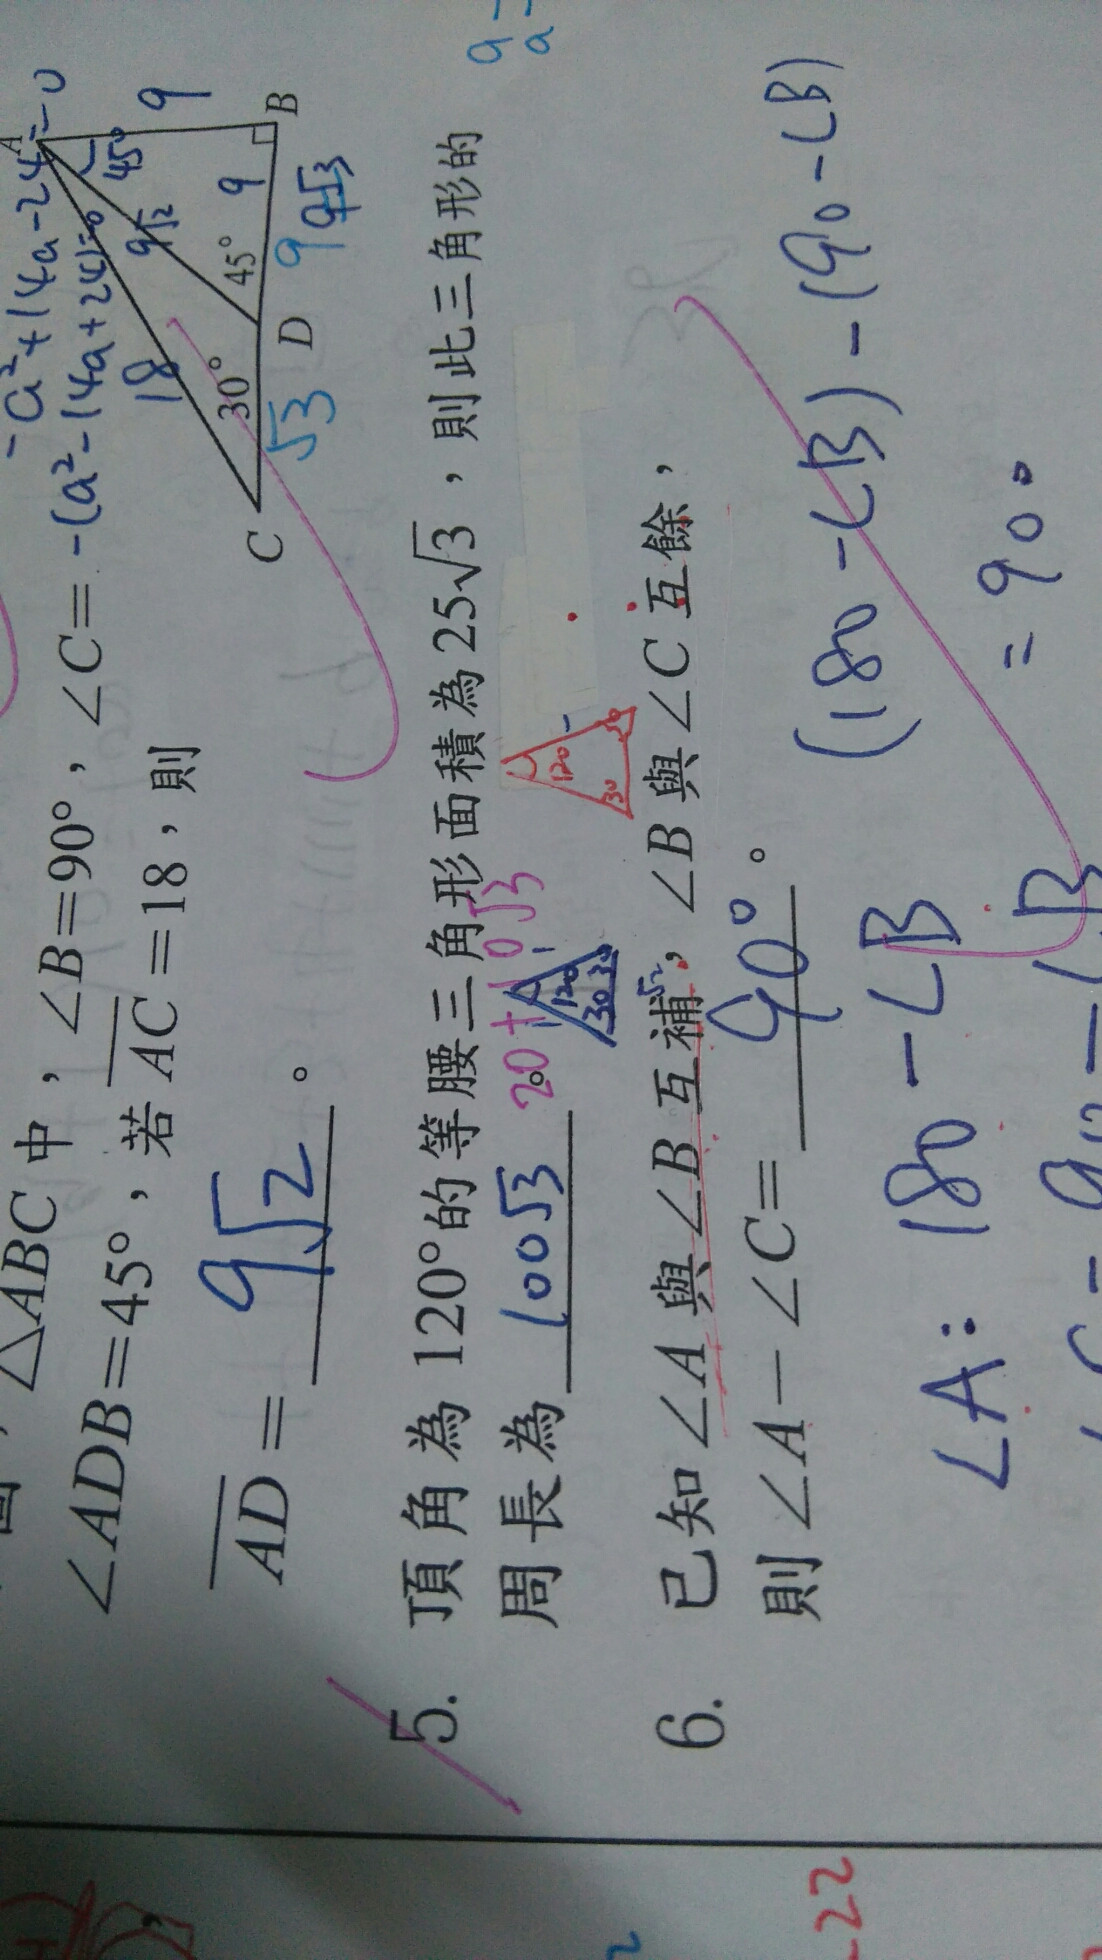 △ABC 中，∠B=90°，∠C=
-a²+14a-24=0
-(a²-14a+24)=0
∠ADB=45°，若 AC=18，則
AD= 9√2 。
A
18
9√2
45°
9
30°
45°
9
C
D
B
√3
9
9√3
5. 頂角為 120°的等腰三角形面積為 25√3，則此三角形的
周長為 100√3 。
20+10√3
120
30 30
120
30
6. 已知∠A 與∠B 互補，∠B 與∠C 互餘，
則∠A－∠C= 90° 。
(180-∠B)-(90-∠B)
∠A: 180-∠B
=90°
-22